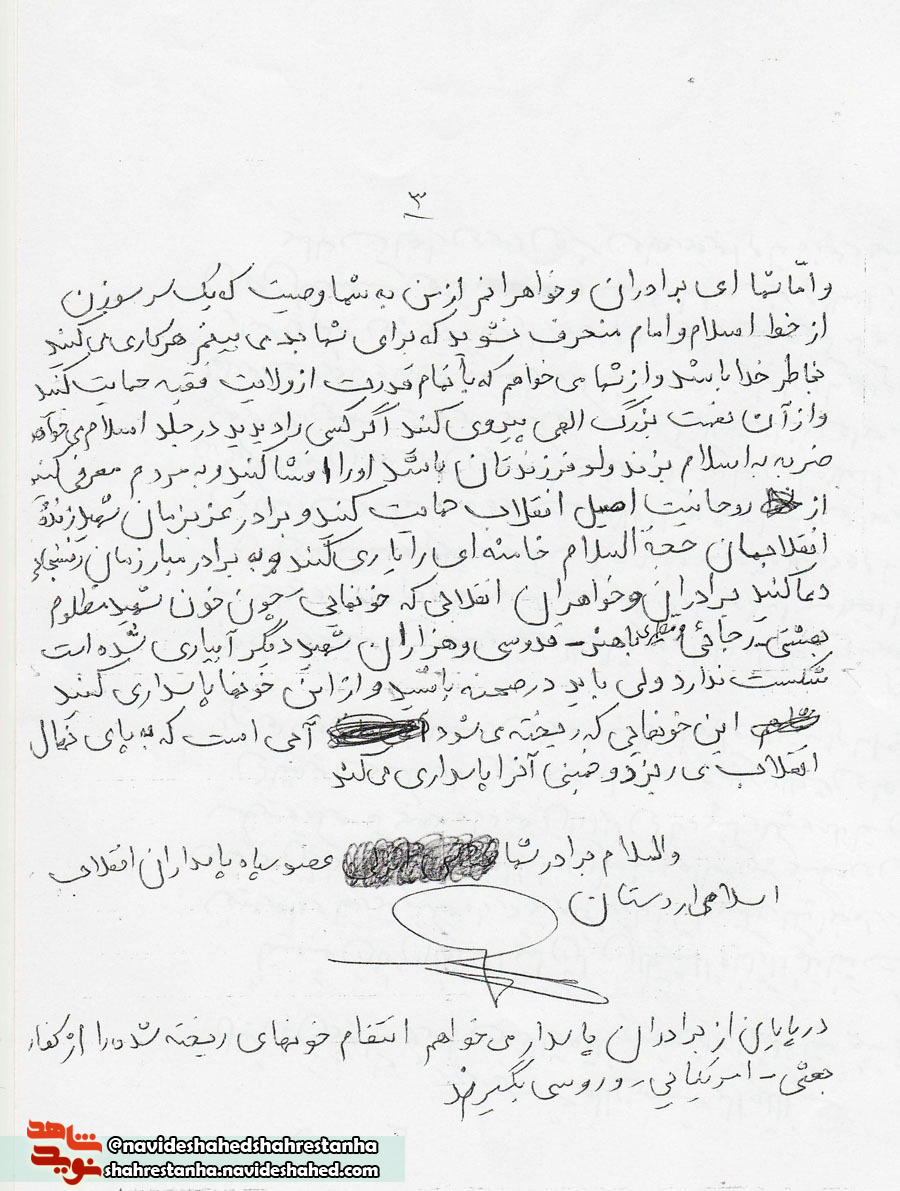 ۳
و امّا شما ای برادران و خواهرانم از من به شما وصیت که یک سر سوزن
از خط اسلام و امام منحرف نشوید که برای شما بد می بینم هر کاری می کنید
بخاطر خدا باشد و از شما می خواهم که با تمام قدرت از ولایت فقیه حمایت کنید
و از آن نعمت بزرگ الهی پیروی کنید اگر کسی را دیدید در جلد اسلام می خواهد
ضربه به اسلام بزند ولو فرزندتان باشد او را افشا کنید و به مردم معرفی کنید
از روحانیت اصیل انقلاب حمایت کنید و برادر عزیزمان شهید زندهٔ
انقلابمان حجة السلام خامنه ای را یاری کنید و به برادر مبارزمان رفسنجانی
دعا کنید برادران و خواهران انقلابی که خونهایی چون خون شهید مظلوم
بهشتی - رجائی باهنر - قدوسی و هزاران شهید دیگر آبیاری شده است
شکست ندارد ولی باید در صحنه باشید و از این خونها پاسداری کنید
این خونهایی که ریخته می شود آبی است که به پای نهال
انقلاب می ریزد و خمینی آنرا پاسداری می کند
والسلام برادر شما عضو سپاه پاسداران انقلاب
اسلامی اردستان
در پایان از برادران پاسدار می خواهم انتقام خونهای ریخته شده را از کفار
بعثی - امریکایی - و روسی بگیرند
شاهد
نوید
@navideshahedshahrestanha
shahrestanha.navideshahed.com